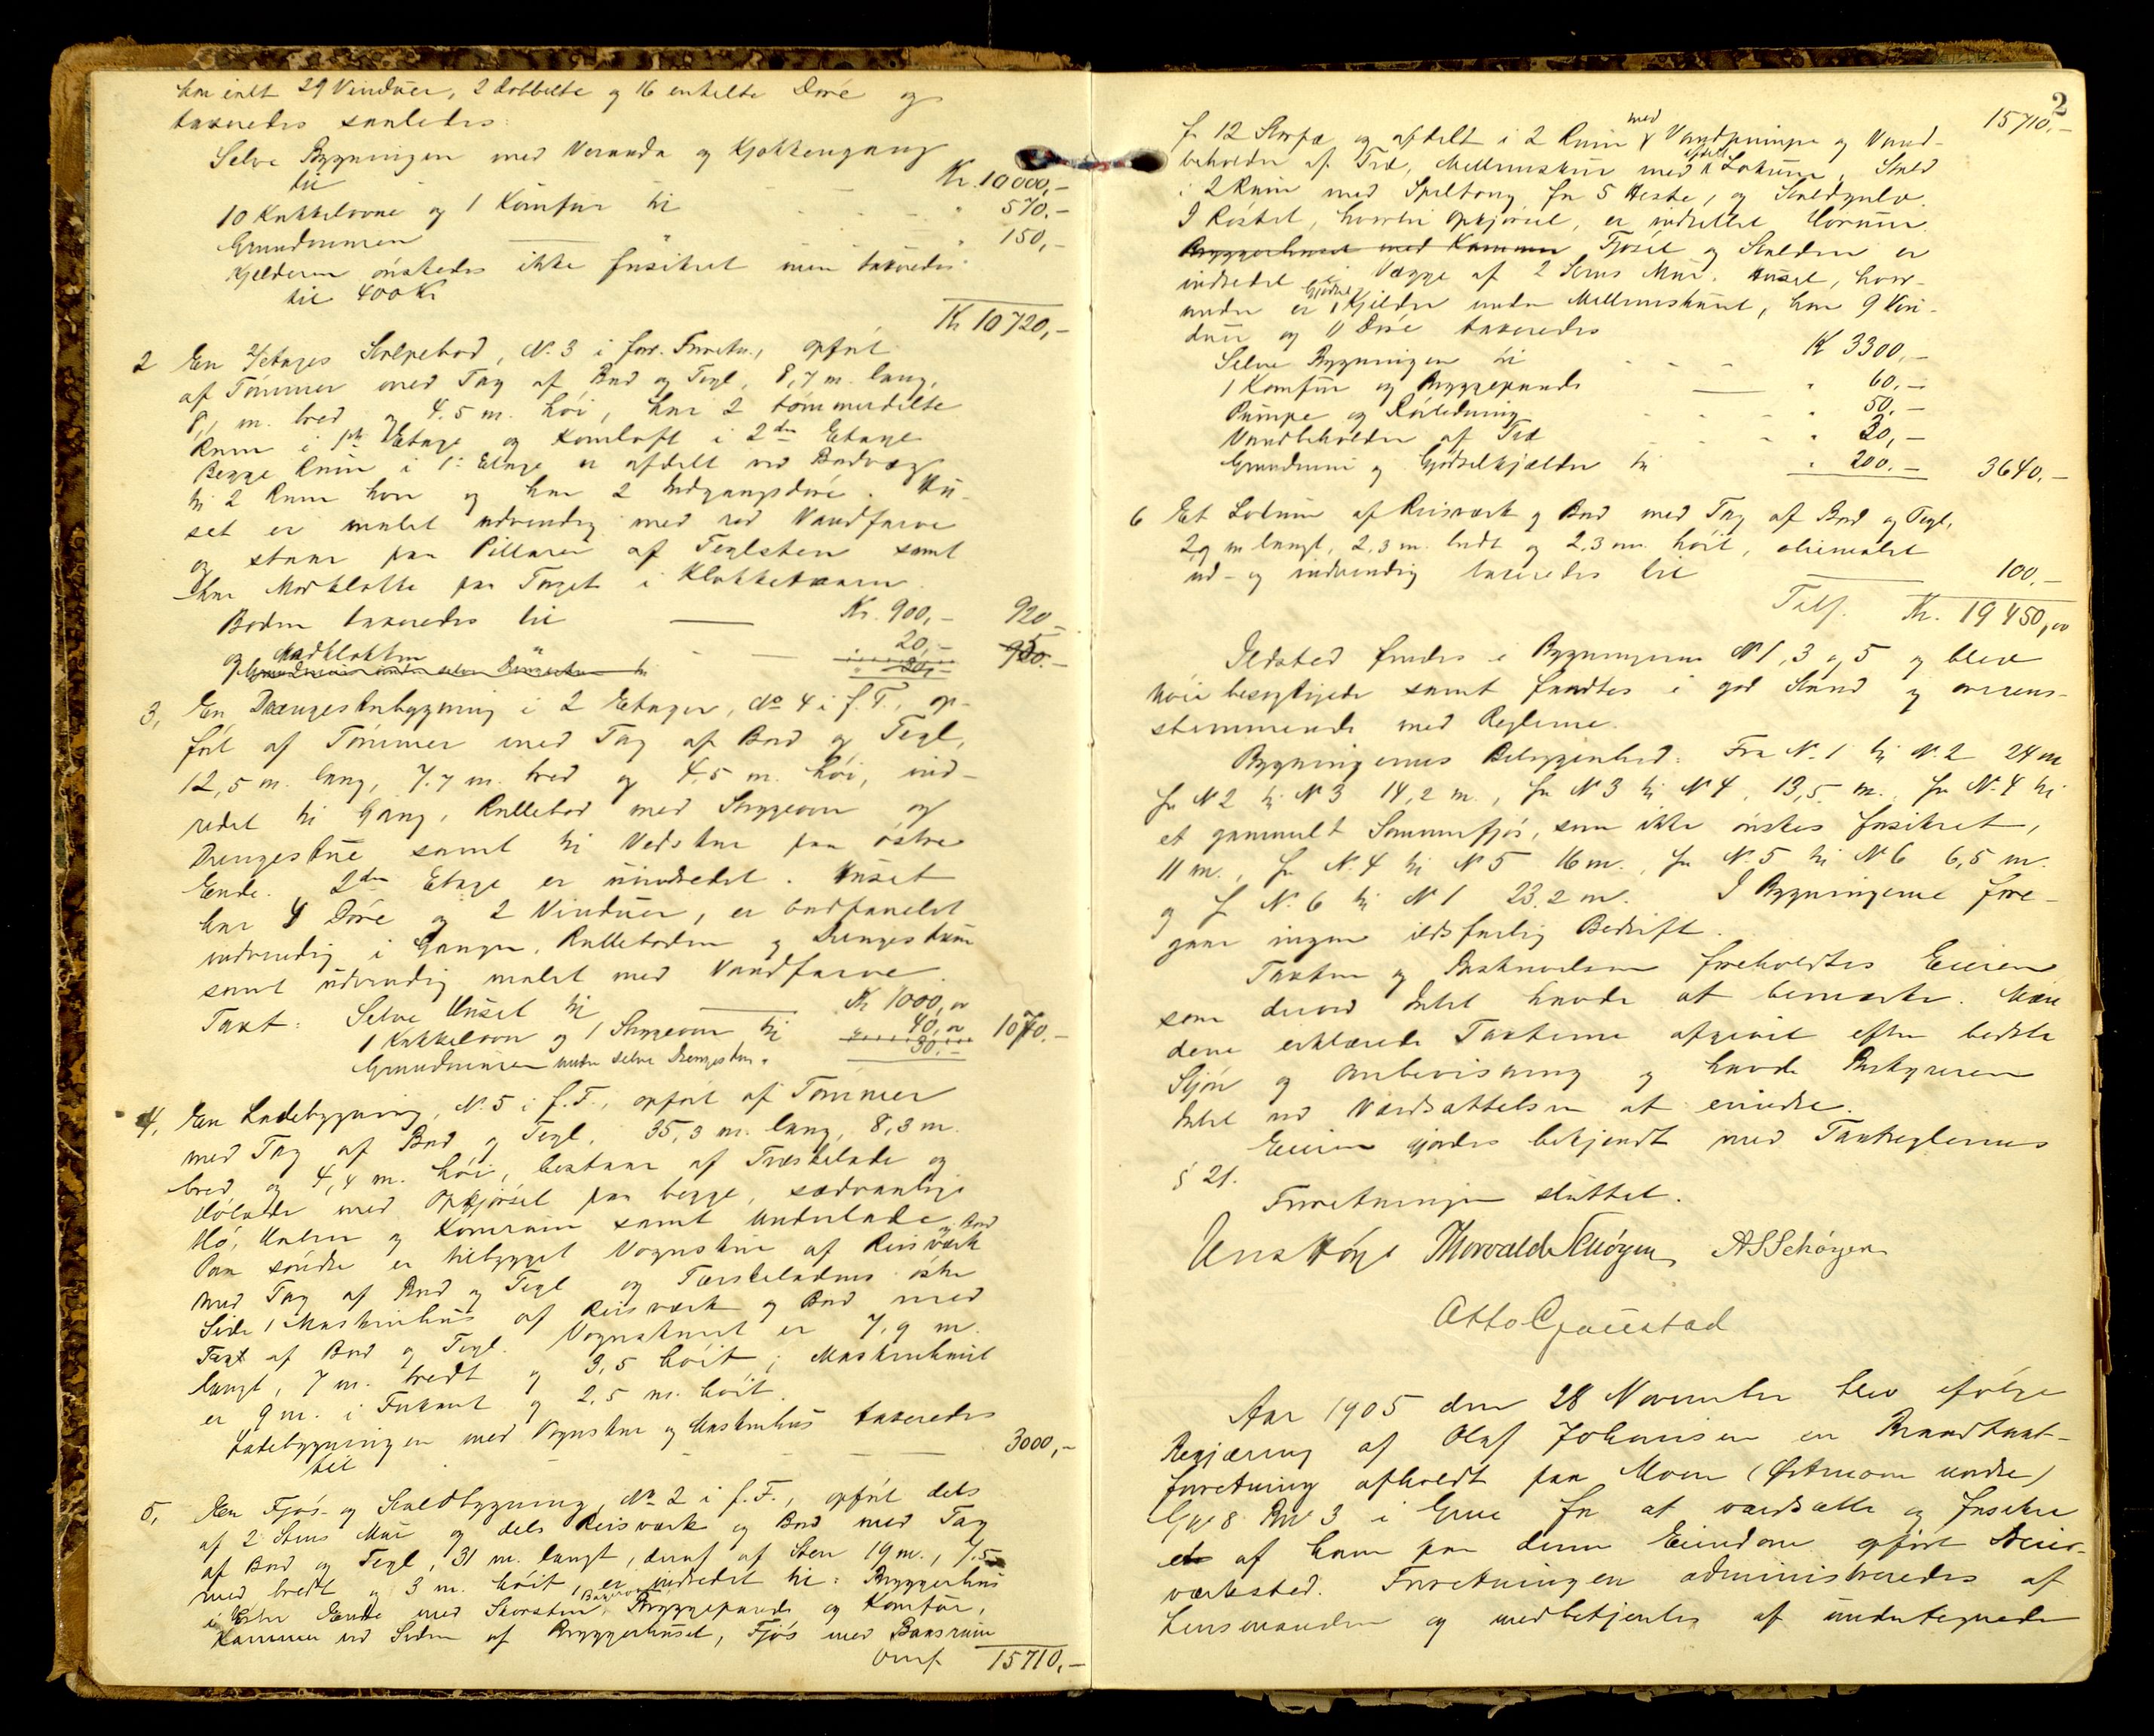 har ialt 29 Vinduer, 2 dobbelte og 16 enkelte Døre og
taxeredes saaledes:
Selve Bygningen med Veranda og Kjøkkengang
til Kr. 10000,-
10 Kakkelovne og 1 Komfur til " 570.-
Grundmuren " 150,-
Kjelderen ønskedes ikke forsikret men taxeredes
til 400 Kr
Kr 10720,-
2 En 2/etages Stolpebod, No. 3 i forr. Forretn., opført
af Tømmer med Tag af Bord og Tegl, 8,7 m. lang,
8,1 m. bred og 4.5 m. høi, har 2 tømmerdelte
Rum i 1ste Etage og Kornloft i 2den Etage
Begge Rum i 1: Etage er afdelt ved Bordvæg
til 2 Rum hver og har 2 Indgangsdøre. Hu-
set er malet udvendig med rød Vandfarve
og staar paa Pillarer af Teglsten samt
har Madklokke paa Taget i Klokketaarn.
Boden taxeredes til Kr. 900,- 920
og Madklokken " 20,-
3, En Drængestubygning i 2 Etager, No 4 i f. F., op-
ført af Tømmer med Tag af Bord og Tegl,
12,5 m. lang, 7.7 m. bred og 4.5 m. høi, ind-
redet til Gang, Rullebod med Strygeovn og
Drengestue samt til Vedskur paa østre
Ende. 2den Etage er uindredet. Huset
har 4 Døre og 2 Vinduer, er bordpanelet
indvendig i Gangen, Rulleboden og Drengestuen
samt udvendig malet med Vandfarve.
Taxt: Selve Huset til Kr 1000,00
1 Kakkelovn og 1 Strygeovn til 40,00 1070.-
Grundmuren under selve Drengestuen " 30.-
4, En Ladebygning, No. 5 i f. F., opført af Tømmer
med Tag af Bord og Tegl, 35,3 m. lang, 8,3 m.
bred og 4,4 m. høi, bestaar af Træskelade og
Hølade med Opkjørsel paa begge, sædvanlige
Hø, Halm og Kornrum samt Underlade.
Paa søndre er tilbygget Vognskur af Reisværk og Bord
med Tag af Bord og Tegl og Tærskeladens østre
Side 1 Maskinhus af Reisværk og Bord med
Taxt af Bord og Tegl. Vognskuret er 7.9 m.
langt, 7 m. bredt og 3,5 høit; Maskinhuset
er 9 m. i Firkant og 2,5 m. høit.
Ladebygningen med Vognskur og Maskinhus taxeredes
til 3000,-
5, En Fjøs- og Staldbygning, No 2 i f. F., opført dels
af 2 Stens Mur og dels Reisværk og Bord med Tag
af Bord og Tegl, 31 m. langt, deraf af Sten 19 m., 7.5
med bredt og 3 m. høit, er indredet til: Bryggerhus
i Enden med Skorsten, Bagerovn, Bryggepande og Komfur,
Kammer ved Siden af Bryggerhuset, Fjøs med Baasrum
Ovrf. 15710,-
2
15710,-
for 12 Storfæ og afdelt i 2 Rum med Vandpumpe og Vand-
beholder af Træ, Mellemskur med afdelt Lokum, Stald
i 2 Rum med Spiltoug for 5 Heste, og Staldgulv.
I Røstet, hvortil opkjørsel, er indrettet Hørum.
Bryggerhuset med Kammer Fjøset og Stalden er
indredet i Vægge af 2 Stens Mur. Huset, hvor-
under er Gjødselkjelder under Mellemskuret, har 9 Vin-
duer og 11 Døre taxeredes
Selve Bygningen til K 3300,-
1 Komfur og Bryggepande " 60,-
Pumpe og Rørledning " 50,-
Vandbeholder af Træ " 30,-
Grundmur og Gjødselkjælder til " 200.- 3640,-
6 Et Lokum af Reisværk og Bord med Tag af Bord og Tegl,
2,9 m langt, 2,3 m. bredt og 2,3 m. høit, oliemalet
ud- og indvendig taxeredes til 100.-
Tils. Kr. 19450,00
Ildsted findes i Bygningerne No 1, 3 og 5 og blev
nøie besigtigede samt fandtes i god Stand og overens-
stemmende med Reglerne.
Bygningernes Beliggenhed: Fra No. 1 til No. 2 24 m
fra No 2 til No 3 14,2 m., fra No 3 til No 4, 13,5 m., fra No. 4 til
et gammelt Sommerfjøs, som ikke ønskes forsikret,
11 m., fra No. 4 til No 5 16 m., fra No. 5 til No 6 6,5 m.
og fra No. 6 til No 1 23.2 m. I Bygningerne fore-
gaar ingen ildsfarlig Bedrift.
Taxten og Beskrivelsen foreholdtes Eieren
som derved Intet havde at bemærke. Mæn
dene erklærede Taxterne afgivet efter bedste
Skjøn og Overbevisning og havde Bestyreren
Intet ved Værdsættelsen at erindre.
Eieren gjordes bekjendt med Taxtreglernes
§ 21.
Forretningen sluttet.
Thorvald Schøyen A S Schøyen
Otto Gjøustad
Aar 1905 den 28 November blev ifølge
Begjæring af Olaf Johansen en Brandtaxt-
forretning afholdt paa Moen (Østmoen nedre)
Gno 8 Bno 3 i Grue for at værdsætte og forsikre
et af ham paa denne Eiendom opført Snier-
værksted. Forretningen administreredes af
Lensmanden og medbetjentes af undertegnede